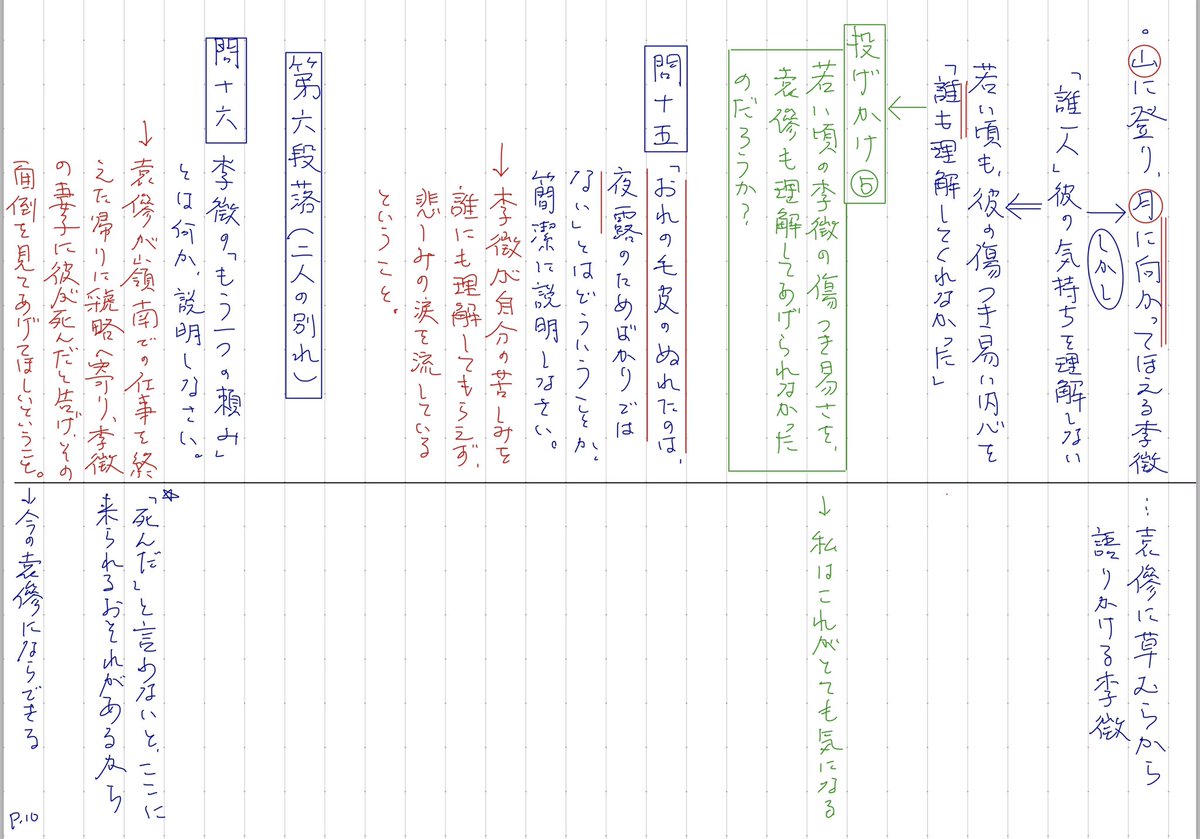 ・山に登り、月に向かってほえる李徴
…袁傪に草むらから
語りかける李徴
しかし
「誰一人」彼の気持ちを理解しない
若い頃も、彼の傷つき易い内心を
「誰も理解してくれなかった」
投げかけ⑤
若い頃の李徴の傷つき易さを、
袁傪も理解してあげられなかった
のだろうか？
↓私はこれがとても気になる
問十五
「おれの毛皮のぬれたのは、
夜露のためばかりでは
ない」とはどういうことか。
簡潔に説明しなさい。
→李徴が自分の苦しみを
誰にも理解してもらえず、
悲しみの涙を流している
ということ。
第六段落（二人の別れ）
問十六
李徴の「もう一つの頼み」
とは何か、説明しなさい。
→袁傪が嶺南での仕事を終
えた帰りに虢略へ寄り、李徴
の妻子に彼が死んだと告げ、その
面倒を見てあげてほしいということ。
☆「死んだ」と言わないと、ここに
来られるおそれがあるから
→今の袁傪にならできる
P.10